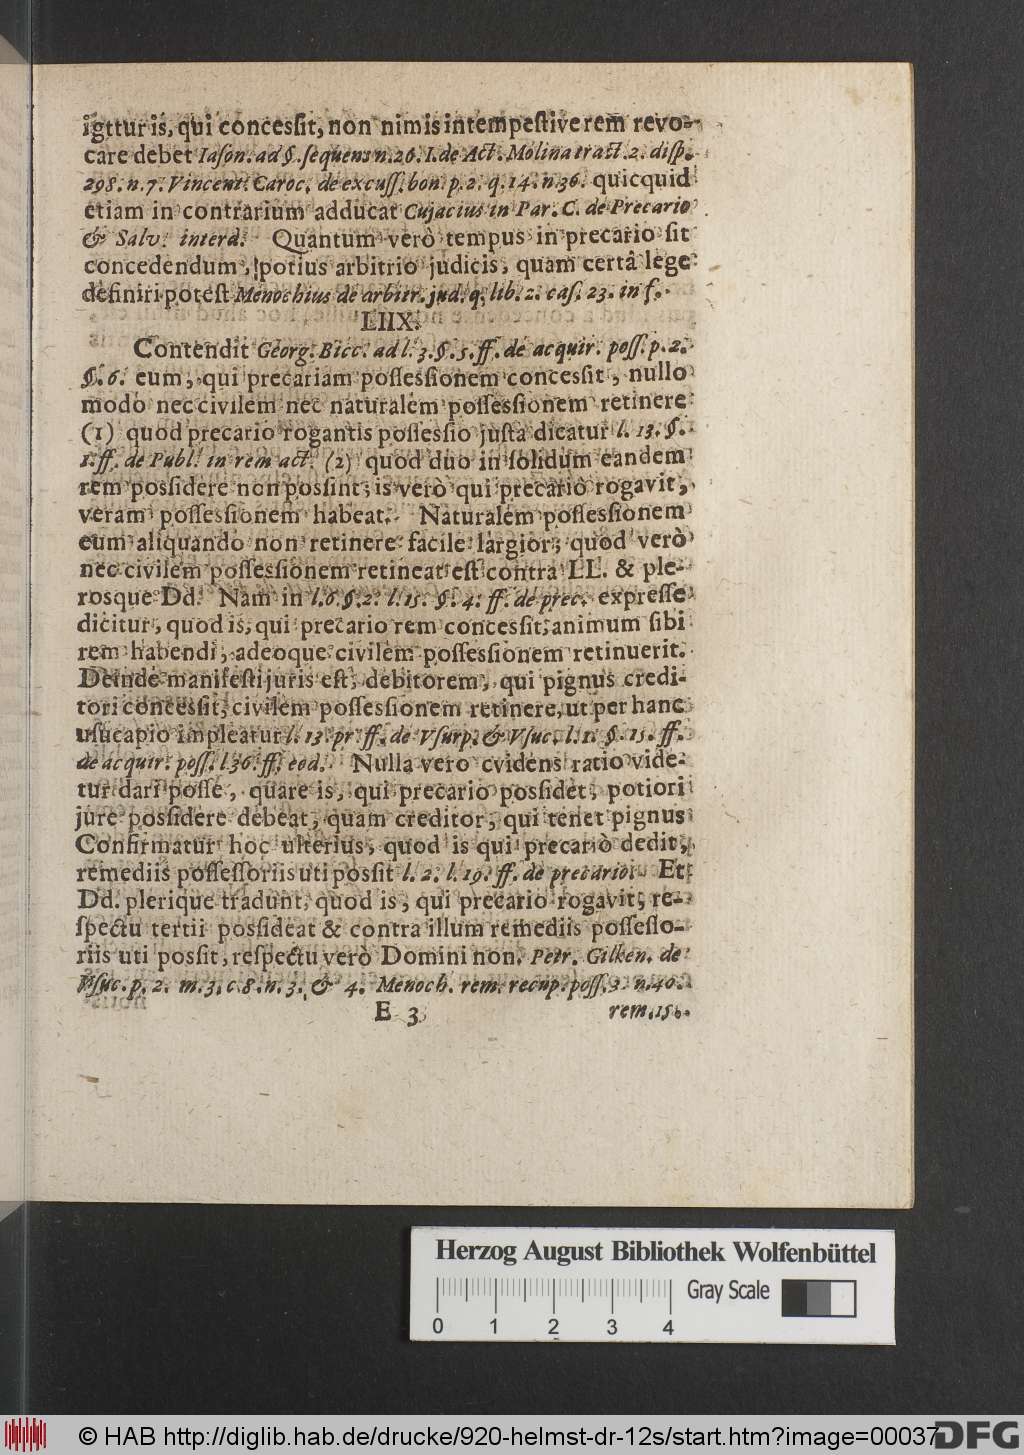 igttur is, qui concessit, non nimis intempestive rem revo-
care debet Iason. ad §. sequens n. 26. I. de Act. Molina tract. 2. disp.
298. n. 7. Vincent. Caroc. de excuss. bon. p. 2. q. 14. n. 36. quicquid
etiam in contrarium adducat Cujacius in Par. C. de Precario
& Salv. interd. Quantum verò tempus in precario sit
concedendum, potius arbitrio judicis, quam certâ lege
definiri potest Menochius de arbitr. jud. q. lib. 2. cas. 23. in f.
LIIX.
Contendit Georg. Bicc. ad l. 3. §. 5. ff. de acquir. poss. p. 2.
§. 6. eum, qui precariam possessionem concessit, nullo
modo nec civilem nec naturalem possessionem retinere
(1) quod precario rogantis possessio justa dicatur l. 13. §.
1. ff. de Publ. in rem act. (2) quod duo in solidum eandem
rem possidere non possint; is verò qui precariò rogavit,
veram possessionem habeat. Naturalem possessionem
eum aliquando non retinere facile largior; quod verò
nec civilem possessionem retineat est contra LL. & ple-
rosque Dd. Nam in l. 6. §. 2. l. 15. §. 4. ff. de prec. expresse
dicitur, quod is, qui precario rem concessit, animum sibi
rem habendi, adeoque civilem possessionem retinuerit.
Deinde manifesti juris est, debitorem, qui pignus credi-
tori concessit, civilem possessionem retinere, ut per hanc
usucapio impleatur l. 13. pr. ff. de Vsurp. & Vsuc. l. 1. §. 15. ff.
de acquir. poss. l 36. ff. eod. Nulla vero evidens ratio vide-
tur dari posse, quare is, qui precario possidet, potiori
jure possidere debeat, quam creditor, qui tenet pignus
Confirmatur hoc ulterius, quod is qui precariò dedit,
remediis possessoriis uti possit l. 2. l. 19. ff. de precario. Et
Dd. plerique tradunt, quod is, qui precario rogavit, re-
spectu tertii possideat & contra illum remediis possesso-
riis uti possit, respectu verò Domini non. Petr. Gilken. de
Vsuc. p. 2. m. 3. c. 8. n. 3. & 4. Menoch. rem. recup. poss. 9. n. 40.
E 3 rem. 15.
Herzog August Bibliothek Wolfenbüttel
Gray Scale
0 1 2 3 4
© HAB http://diglib.hab.de/drucke/920-helmst-dr-12s/start.htm?image=00037
DFG